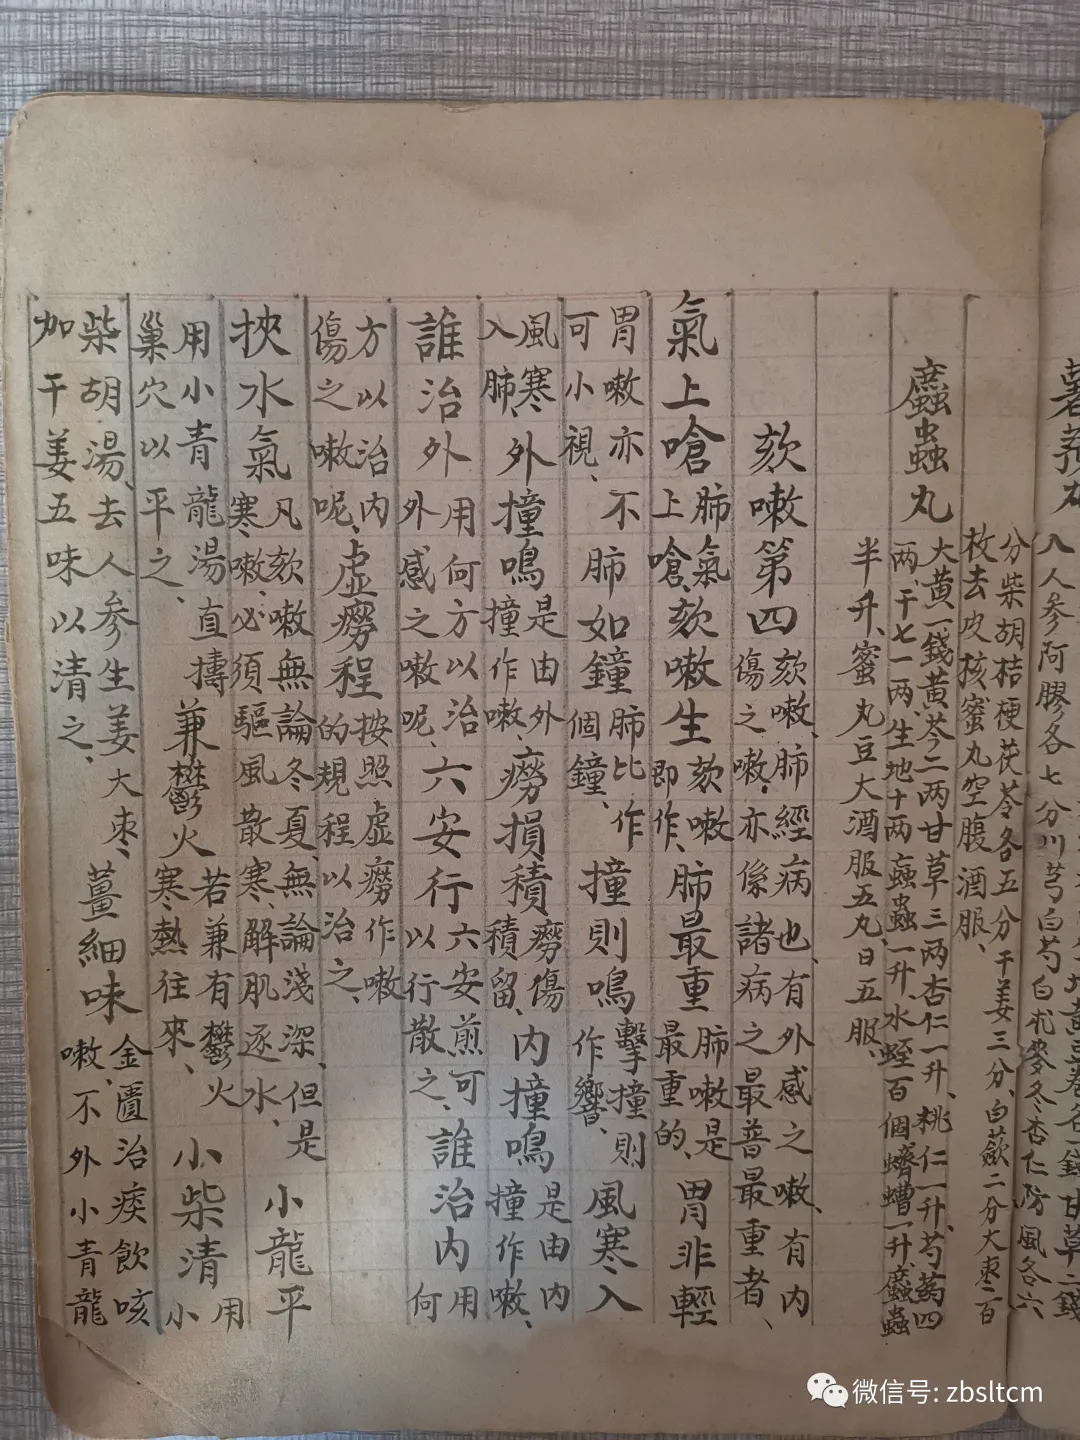 八人參阿膠各七分川芎白芍白朮麥冬杏仁防風各六
分柴胡桔梗茯苓各五分干姜三分、白蘞二分大棗二百
枚去皮核蜜丸空腹酒服、
䗪蟲丸 大黃一錢黃芩二两甘草三两杏仁一升、桃仁一升、芍藥四
两、干七一两、生地十两䖟蟲一升、水蛭百個蠐螬一升、䗪蟲
半升、蜜丸豆大酒服五丸、日五服、
欬嗽第四 欬嗽、肺經病也、有外感之嗽、有内傷之嗽、亦係諸病之最普最重者、
氣上嗆 肺氣上嗆 欬嗽生 欬嗽即作、 肺最重 肺嗽是最重的、 胃非輕
胃嗽亦不可小視、 肺如鐘 肺比作個鐘、 撞則鳴 擊撞則作響、 風寒入
風寒入肺、 外撞鳴 是由外撞作嗽、 癆損積 癆傷積留、 内撞鳴 是由内撞作嗽、
誰治外 用何方以治外感之嗽呢、 六安行 六安煎可以行散之、 誰治内 用何
方以治内傷之嗽呢、 虛癆程 按照虛癆作嗽的規程以治之、
挾水氣 凡欬嗽無論冬夏、無論淺深、但是寒嗽、必須驅風散寒、解肌逐水、 小龍平
用小青龍湯直搗巢穴以平之、 兼鬱火 若兼有鬱火寒熱往來、 小柴清 用小
柴胡湯、去人參生姜大棗、加干姜五味以清之、 薑細味 金匱治痰飲咳嗽、不外小青龍
微信号: zbsltcm